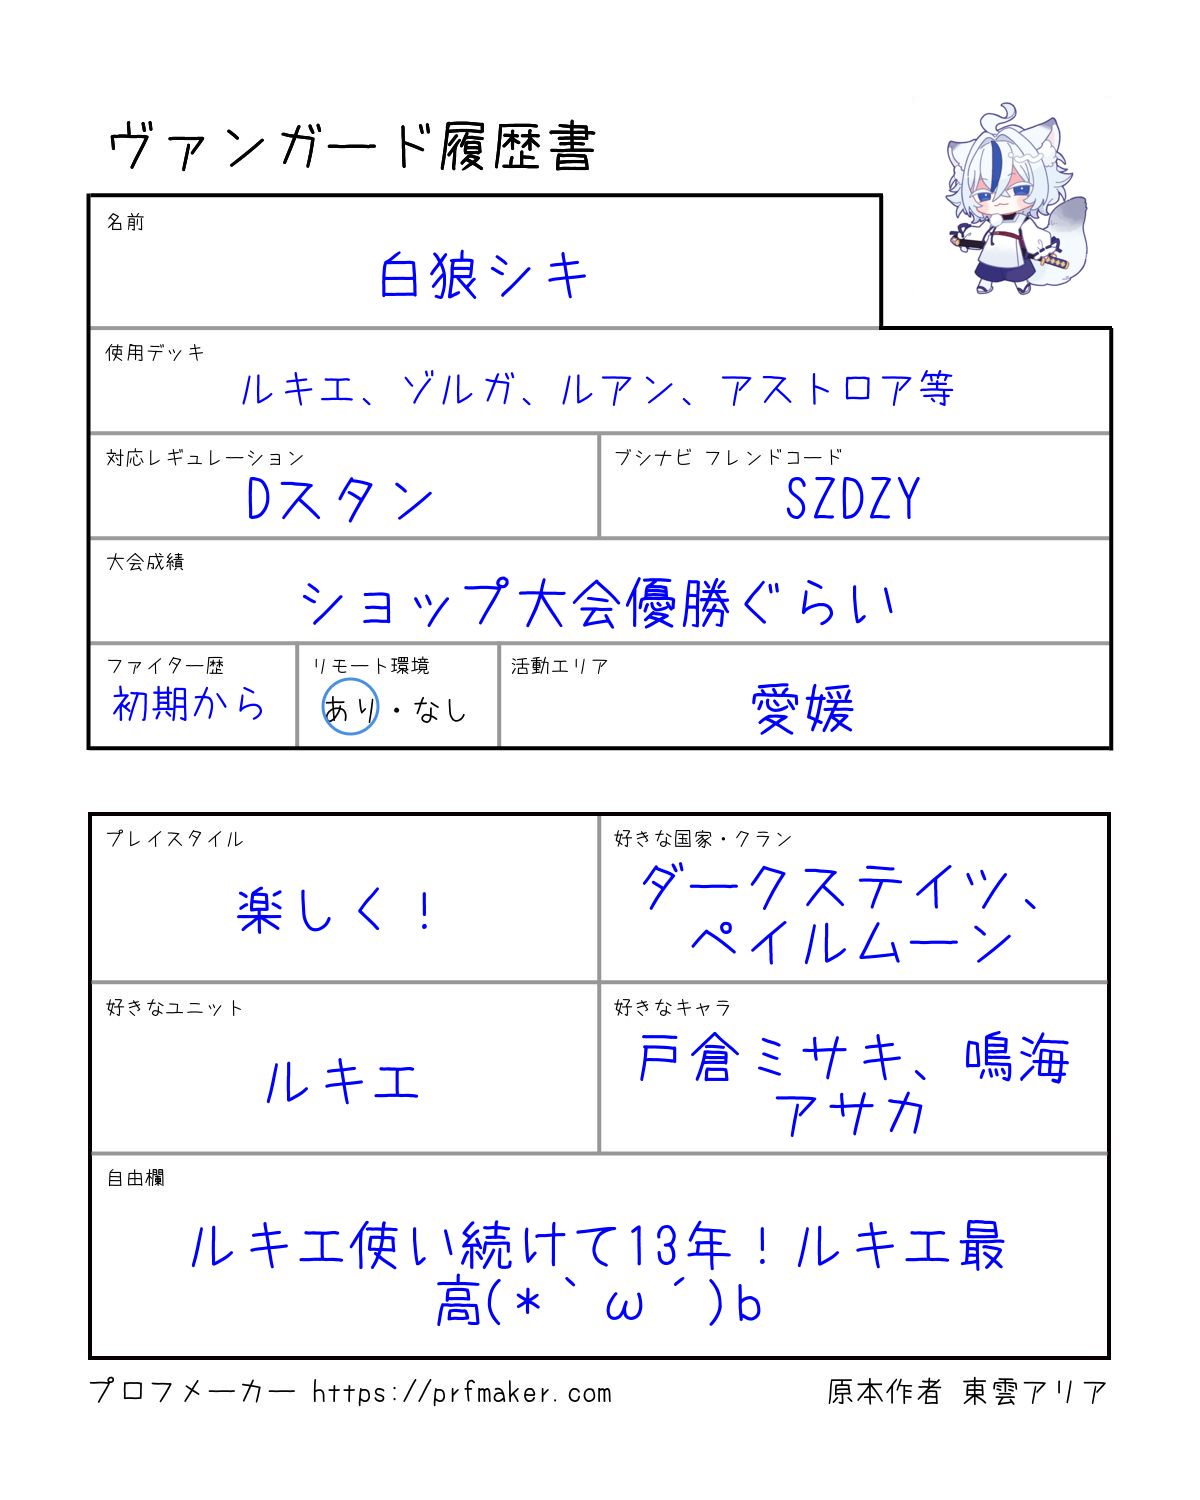 ヴァンガード履歴書
名前
白狼シキ
使用デッキ
ルキエ、ゾルガ、ルアン、アストロア等
対応レギュレーション
Dスタン
ブシナビ フレンドコード
SZDZY
大会成績
ショップ大会優勝ぐらい
ファイター歴
初期から
リモート環境
あり・なし
活動エリア
愛媛
プレイスタイル
楽しく！
好きな国家・クラン
ダークステイツ、
ペイルムーン
好きなユニット
ルキエ
好きなキャラ
戸倉ミサキ、鳴海
アサカ
自由欄
ルキエ使い続けて13年！ルキエ最
高(*｀ω´)b
プロフメーカー https://prfmaker.com
原本作者 東雲アリア